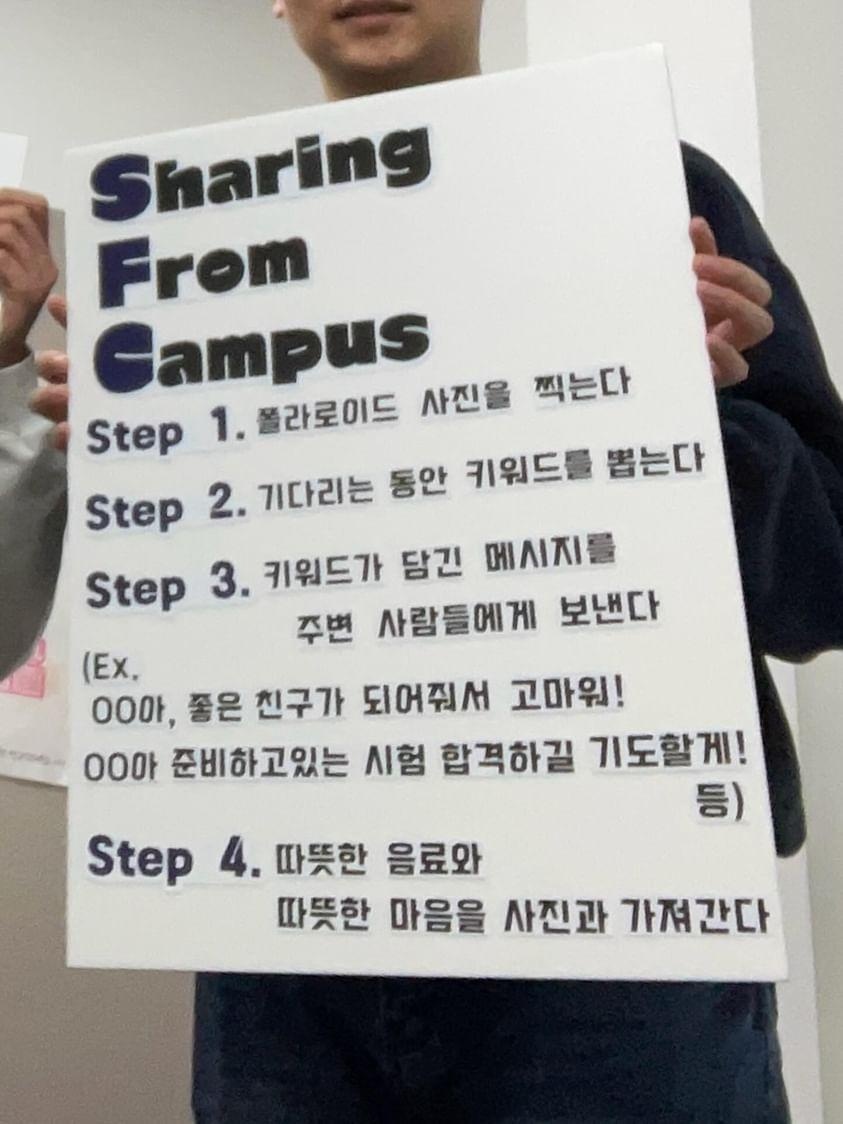 Sharing
From
Campus
Step 1. 폴라로이드 사진을 찍는다
Step 2. 기다리는 동안 키워드를 뽑는다
Step 3. 키워드가 담긴 메시지를
주변 사람들에게 보낸다
(Ex.
OO아, 좋은 친구가 되어줘서 고마워!
OO아 준비하고있는 시험 합격하길 기도할게!
등)
Step 4. 따뜻한 음료와
따뜻한 마음을 사진과 가져간다